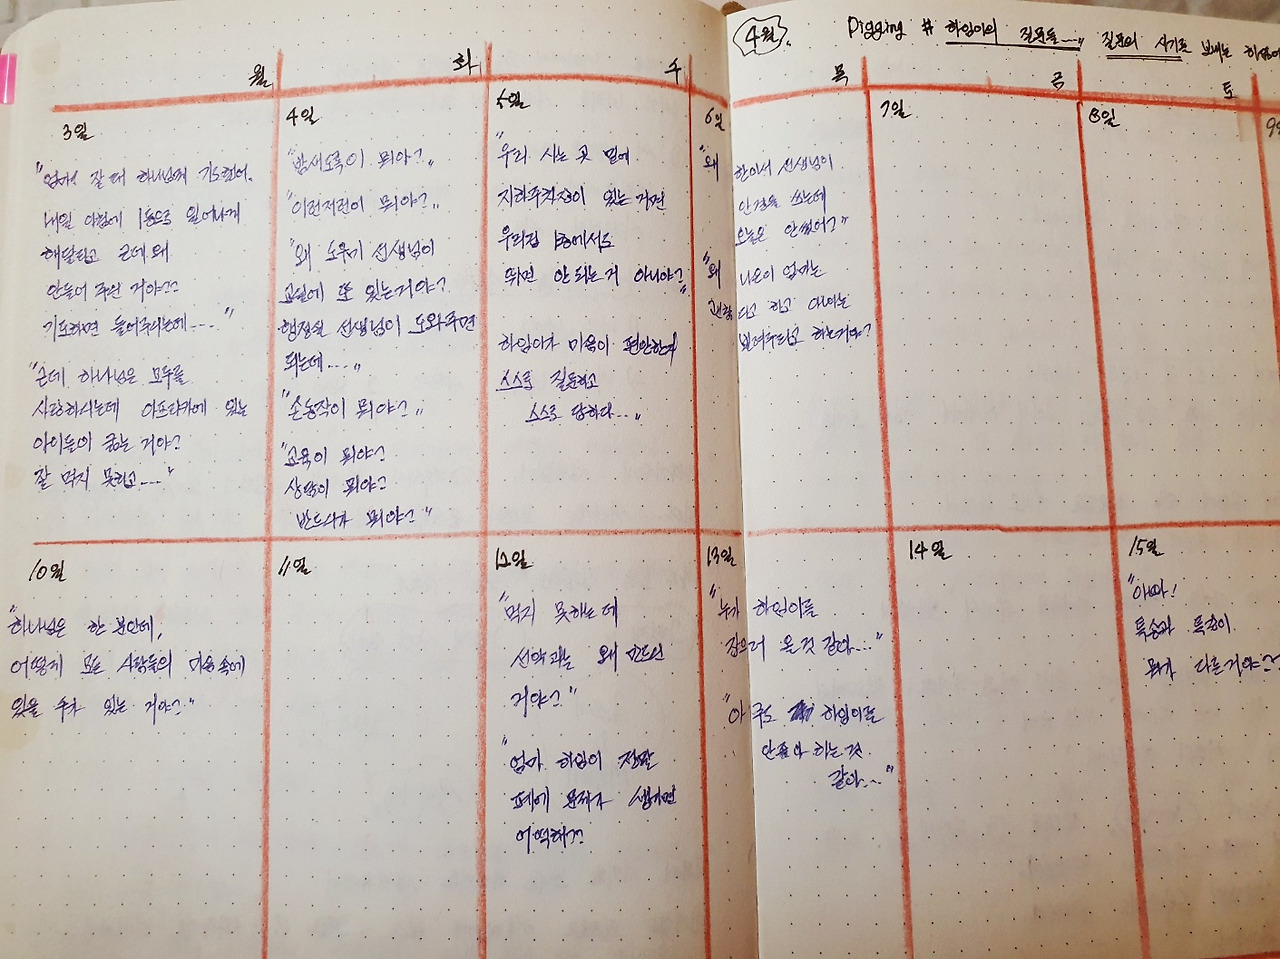 4월. Digging # 하임이의 질문들....,, 질문의 시기로 보내는
월 화 수 목 금 토
3일
"엄마 잘 때 하나님께 기도했어.
내일 아침에 1등으로 일어나게
해달라고 근데 왜
안들어 주신 거야??
기도하면 들어주시는데...."
"근데 하나님은 모두를
사랑하시는데 아프리카에 있는
아이들이 굶는 거야?
잘 먹지 못하고...."
4일
"밤새도록이 뭐야?"
"이런저런이 뭐야?"
"왜 도우미 선생님이
교실에 또 있는거야?
행정실 선생님이 도와주면
되는데...."
"손동작이 뭐야?"
"교육이 뭐야?
상막이 뭐야?
반드시가 뭐야?"
5일
"우리 사는 곳 밑에
지하주차장이 있는 거면
우리집 1층에서도
뛰면 안 되는 거 아니야?"
하임이가 마음이 편안한지
스스로 질문하고
스스로 답하다...."
6일
"왜 한이서 선생님이
안경을 쓰는데
오늘은 안썼어?"
"왜 나은이 엄마는
라고 하고 아빠는
보여주라고 하는거야?
7일
8일
10일
"하나님은 한 분인데,
어떻게 모든 사람들의 마음속에
있을 수가 있는 거야?"
11일
12일
"먹지 못하는데
선악과는 왜 만드신
거야?"
"엄마 하임이 정말
폐에 문제가 생기면
어떡해??
13일
"누가 하임이를
잡으러 온 것 같아..."
"아무도 하임이를
안좋아 하는것
같아..."
14일
15일
"아빠!
특송과 특징이
뭐가 다른거야??